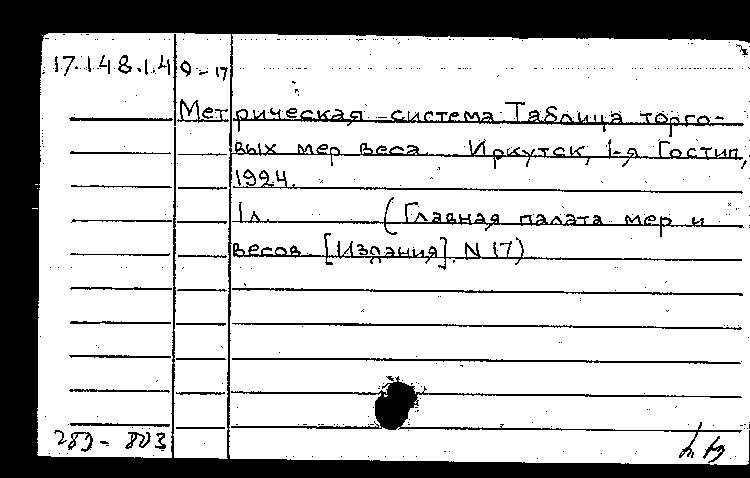 17.148.1.4 9-17
Метрическая система Таблица торго-
вых мер веса Иркутск, 1-я Гостип,
1924.
1л. (Главная палата мер и
весов [Издания] N 17)
289-803